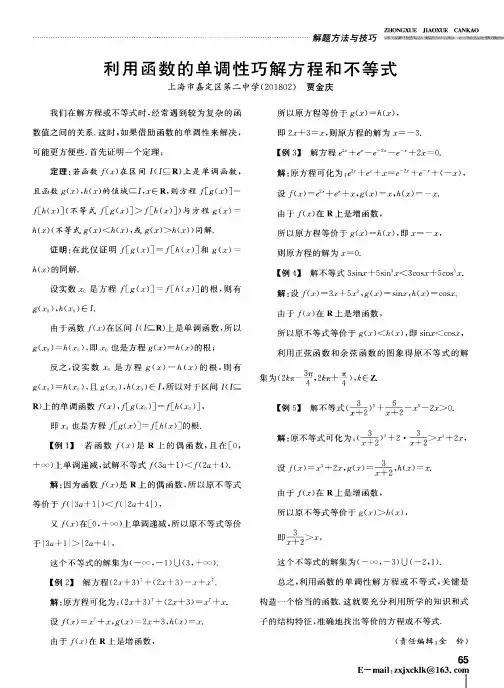 解题方法与技巧
ZHONGXUE JIAOXUE CANKAO
利用函数的单调性巧解方程和不等式
上海市嘉定区第二中学(201802) 贾金庆
我们在解方程或不等式时,经常遇到较为复杂的函
数值之间的关系.这时,如果借助函数的单调性来解决,
可能更方便些.首先证明一个定理:
定理:若函数 f(x)在区间 I(I⊆R)上是单调函数,
且函数 g(x),h(x)的值域⊂I,x∈R,则方程 f[g(x)]=
f[h(x)](不等式 f[g(x)]>f[h(x)])与方程 g(x)=
h(x)(不等式 g(x)<h(x),或 g(x)>h(x))同解.
证明:在此仅证明 f[g(x)]=f[h(x)]和 g(x)=
h(x)的同解.
设实数 x₀ 是方程 f[g(x)]=f[h(x)]的根,则有
g(x₀),h(x₀)∈I.
由于函数 f(x)在区间 I(I⊆R)上是单调函数,所以
g(x₀)=h(x₀),即 x₀ 也是方程 g(x)=h(x)的根;
反之,设实数 x₀ 是方程 g(x)=h(x)的根,则有
g(x₀)=h(x₀),且 g(x₀),h(x₀)∈I,所以对于区间 I(I⊆
R)上的单调函数 f(x),f[g(x₀)]=f[h(x₀)],
即 x₀ 也是方程 f[g(x)]=f[h(x)]的根.
【例1】 若函数 f(x)是 R 上的偶函数,且在[0,
+∞)上单调递减,试解不等式 f(3a+1)<f(2a+4).
解:因为函数 f(x)是 R 上的偶函数,所以原不等式
等价于 f(|3a+1|)<f(|2a+4|),
又 f(x)在[0,+∞)上单调递减,所以原不等式等价
于|3a+1|>|2a+4|,
这个不等式的解集为(-∞,-1)∪(3,+∞).
【例2】 解方程(2x+3)⁷+(2x+3)=x+x⁷.
解:原方程可化为:(2x+3)⁷+(2x+3)=x⁷+x.
设 f(x)=x⁷+x,g(x)=2x+3,h(x)=x.
由于 f(x)在 R 上是增函数,
所以原方程等价于 g(x)=h(x),
即 2x+3=x,则原方程的解为 x=-3.
【例3】 解方程 e²ˣ+eˣ-e⁻²ˣ-e⁻ˣ+2x=0.
解:原方程可化为:e²ˣ+eˣ+x=e⁻²ˣ+e⁻ˣ+(-x),
设 f(x)=e²ˣ+eˣ+x,g(x)=x,h(x)=-x.
由于 f(x)在 R 上是增函数,
所以原方程等价于 g(x)=h(x),即 x=-x,
则原方程的解为 x=0.
【例4】 解不等式 3sinx+5sin³x<3cosx+5cos³x.
解:设 f(x)=3x+5x³,g(x)=sinx,h(x)=cosx.
由于 f(x)在 R 上是增函数,
所以原不等式等价于 g(x)<h(x),即 sinx<cosx,
利用正弦函数和余弦函数的图象得原不等式的解
集为(2kπ-3π/4,2kπ+π/4),k∈Z.
【例5】 解不等式(3/(x+2))³+6/(x+2)-x³-2x>0.
解:原不等式可化为:(3/(x+2))³+2·3/(x+2)>x³+2x,
设 f(x)=x³+2x,g(x)=3/(x+2),h(x)=x.
由于 f(x)在 R 上是增函数,
所以原不等式等价于 g(x)>h(x),
即3/(x+2)>x,
这个不等式的解集为(-∞,-3)∪(-2,1).
总之,利用函数的单调性解方程或不等式,关键是
构造一个恰当的函数.这就要充分利用所学的知识和式
子的结构特征,准确地找出等价的方程或不等式.
(责任编辑:金 铃)
65
E-mail:zxjxcklk@163.com